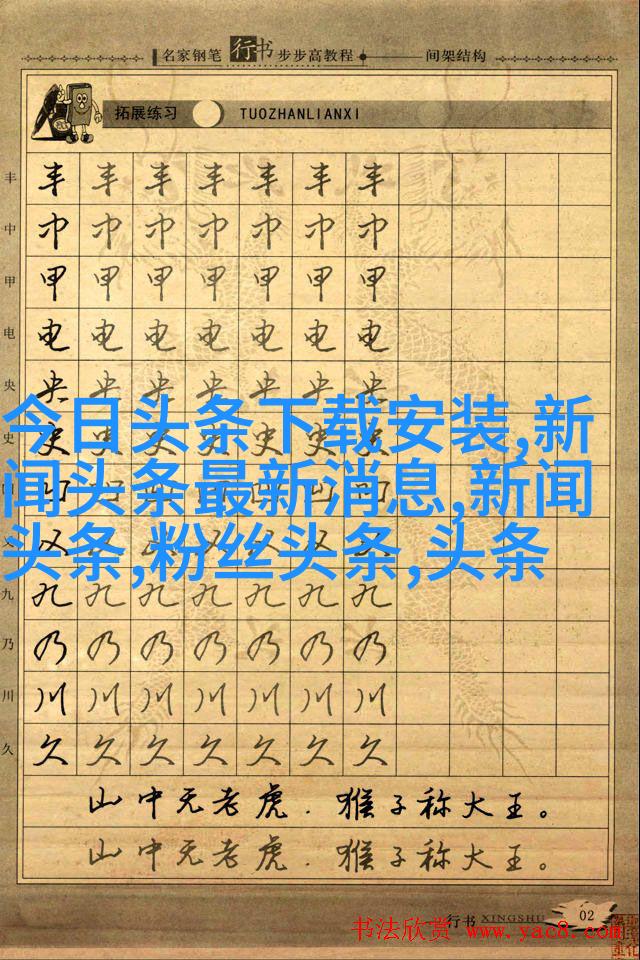 名家钢笔 行书 步步高教程 间架结构
拓展练习 TUOZHANLIANXI
丰 丰 丰 丰 丰 丰 丰 丰
中 中 中 中 中 中 中 中
甲 甲 甲 甲 甲 甲 甲 甲
电 电 电 电 电 电 电 电
央 央 央 央 央 央 央 央
今日头条下载安装,新
史 史 史 史 史 史 史 史
闻头条最新消息,新闻
头条,粉丝头条,头条
九 九 九 九 九 九 九 九
乃 乃 乃 乃 乃 乃 乃 乃
川 川 川 川 川 川 川 川
久 久 久 久 久 久 久 久
山中无老虎.猴子称大王。
山中无老虎.猴子称大王。
行书 XINGSHU 02
书法欣赏 www.yac8.com